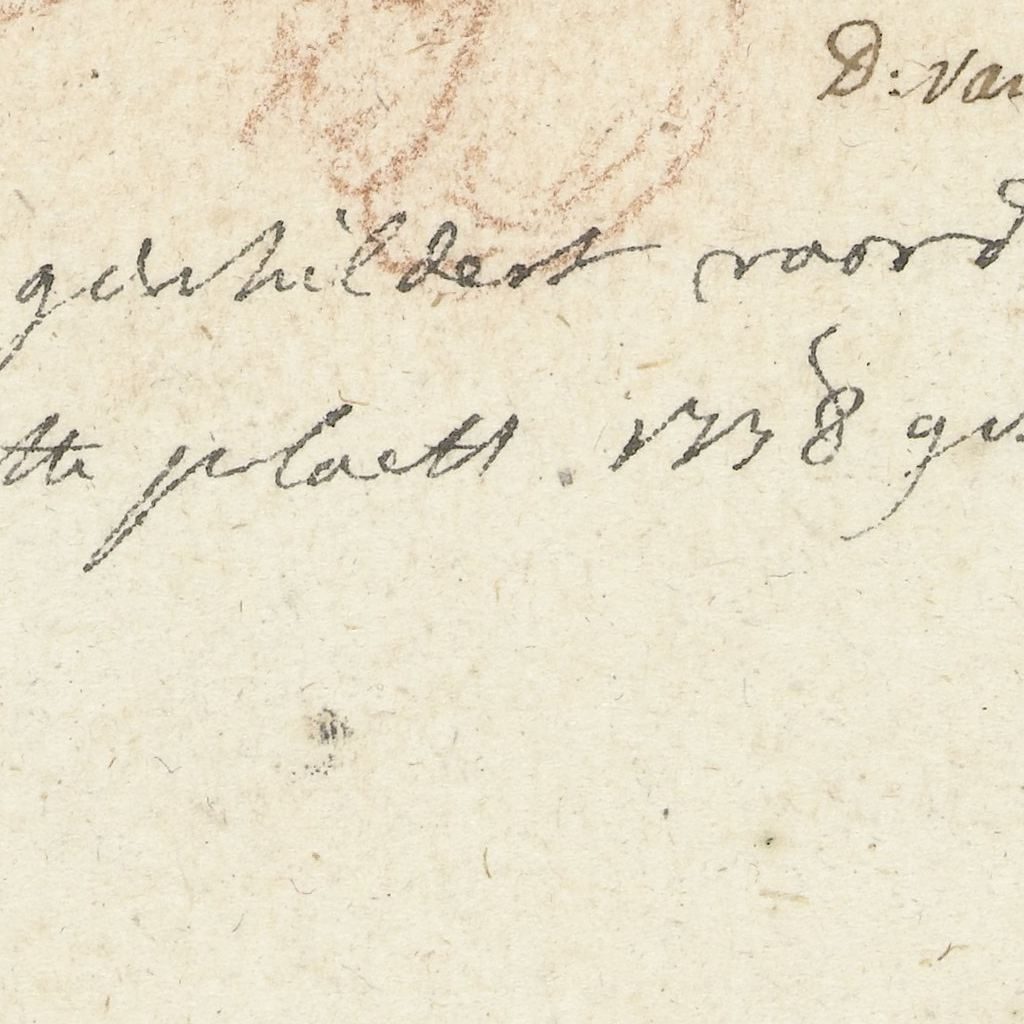 D: Van
geschildert voord
tte plaett. 1738 ge